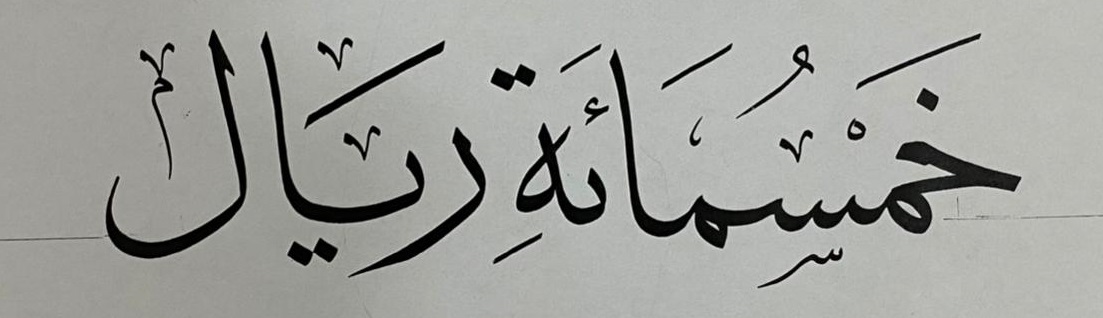 خَمْسُمَائَةِ رِيَال